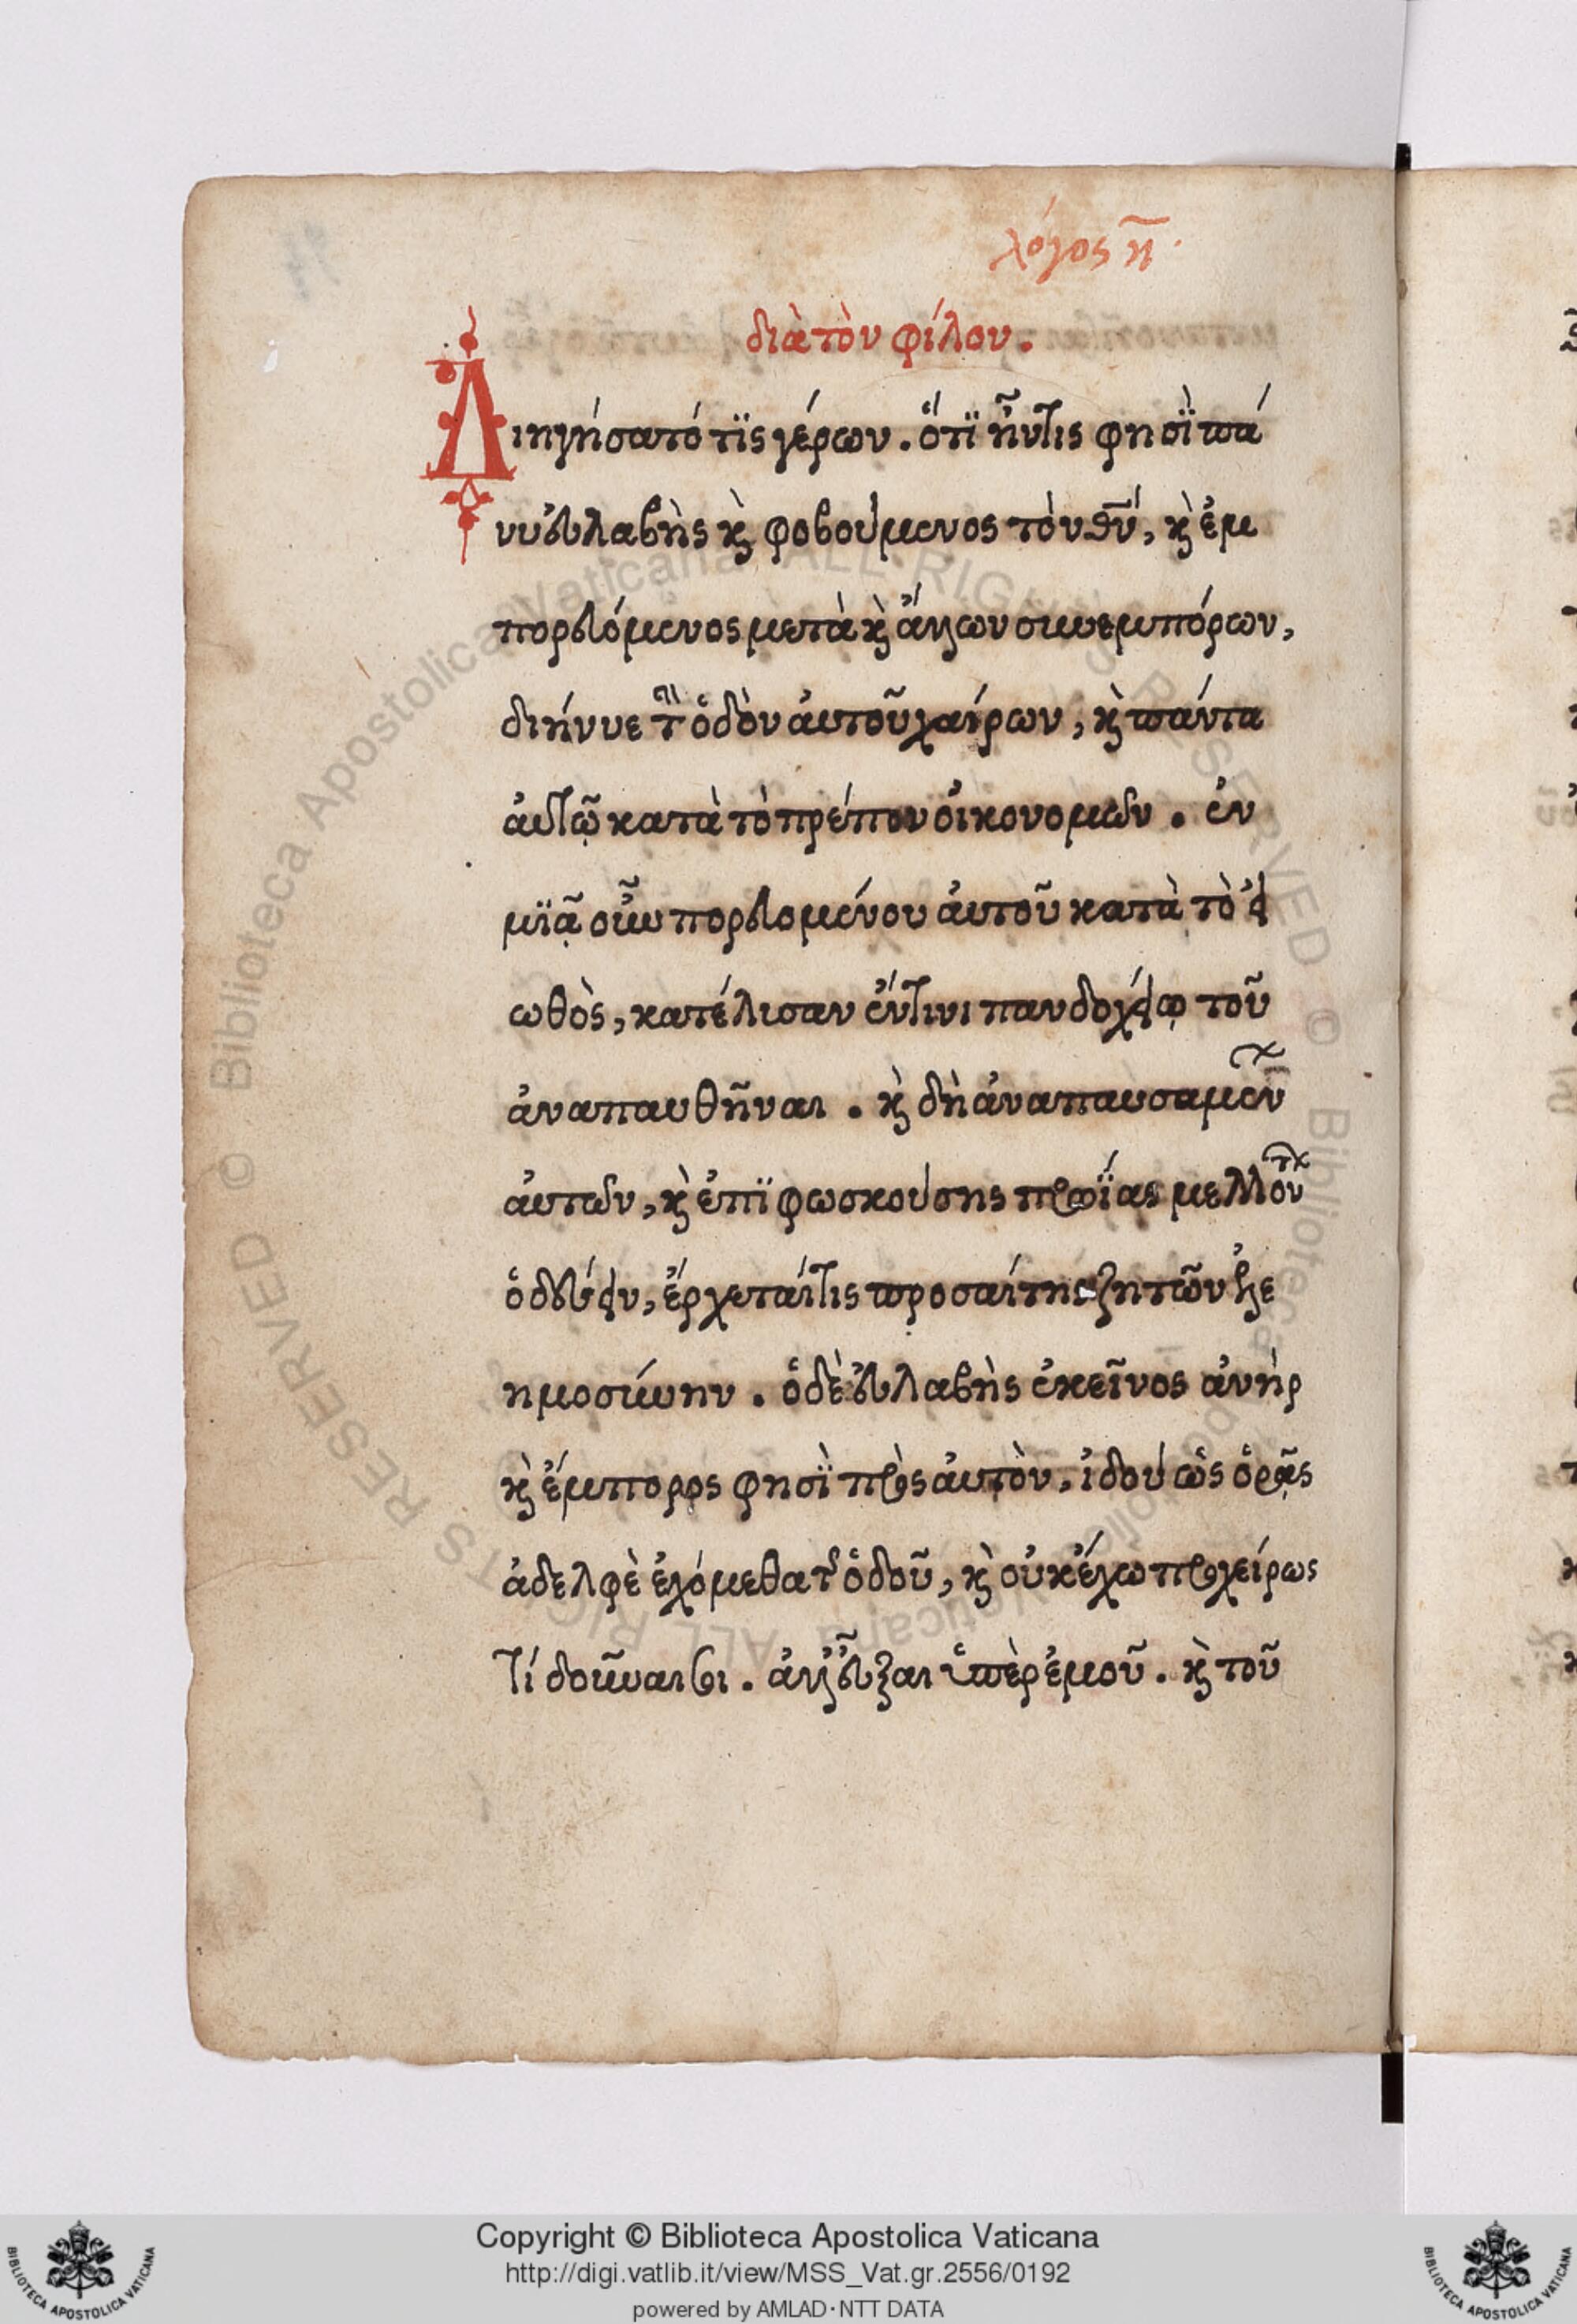 λόγος η̄.
διὰ τὸν φίλον.
Διηγήσατό τϊς γέρων. ὅτϊ ἦν τις φησῒ πά
νυ εὐλαβὴς κ̀ φοβούμενος τὸν θν̅, κ̀ ἐμ
πορευόμενος μετὰ κ̀ ἄλλων συνεμπόρων,
διήνυε τὴν ὁδὸν ἀυτοῦ χαίρων, κ̀ πάντα
ἀυτῶ κατὰ τὸ πρέπον οἰκονομῶν. ἐν
μϊᾷ οὖν πορευομένου ἀυτοῦ κατὰ τὸ εἰ
ωθὸς, κατέλυσαν ἔν τινι πανδοχείῳ τοῦ
ἀναπαυθῆναι. κ̀ δὴ ἀναπαυσαμένων
ἀυτῶν, κ̀ ἐπϊφωσκούσης πρωΐας μελλόντων
ὁδεύειν, ἔρχεταί τις προσαίτης ζητῶν ἐλε
ημοσύνην. ὁ δὲ εὐλαβὴς ἐκεῖνος ἀνὴρ
κ̀ ἔμπορος φησῒ πρὸς ἀυτὸν, ἰδού ὡς ὁρᾷς
ἀδελφὲ ἐχόμεθα τῆς ὁδοῦ, κ̀ οὐκ ἔχω προχείρως
τί δοῦναι σοι. ἀλλ' εὖξαι ὑπὲρ ἐμοῦ. κ̀ τοῦ
Copyright © Biblioteca Apostolica Vaticana
http://digi.vatlib.it/view/MSS_Vat.gr.2556/0192
powered by AMLAD·NTT DATA
BIBLIOTECA APOSTOLICA VATICANA
BIBLIOTECA APOSTOLICA VATICANA